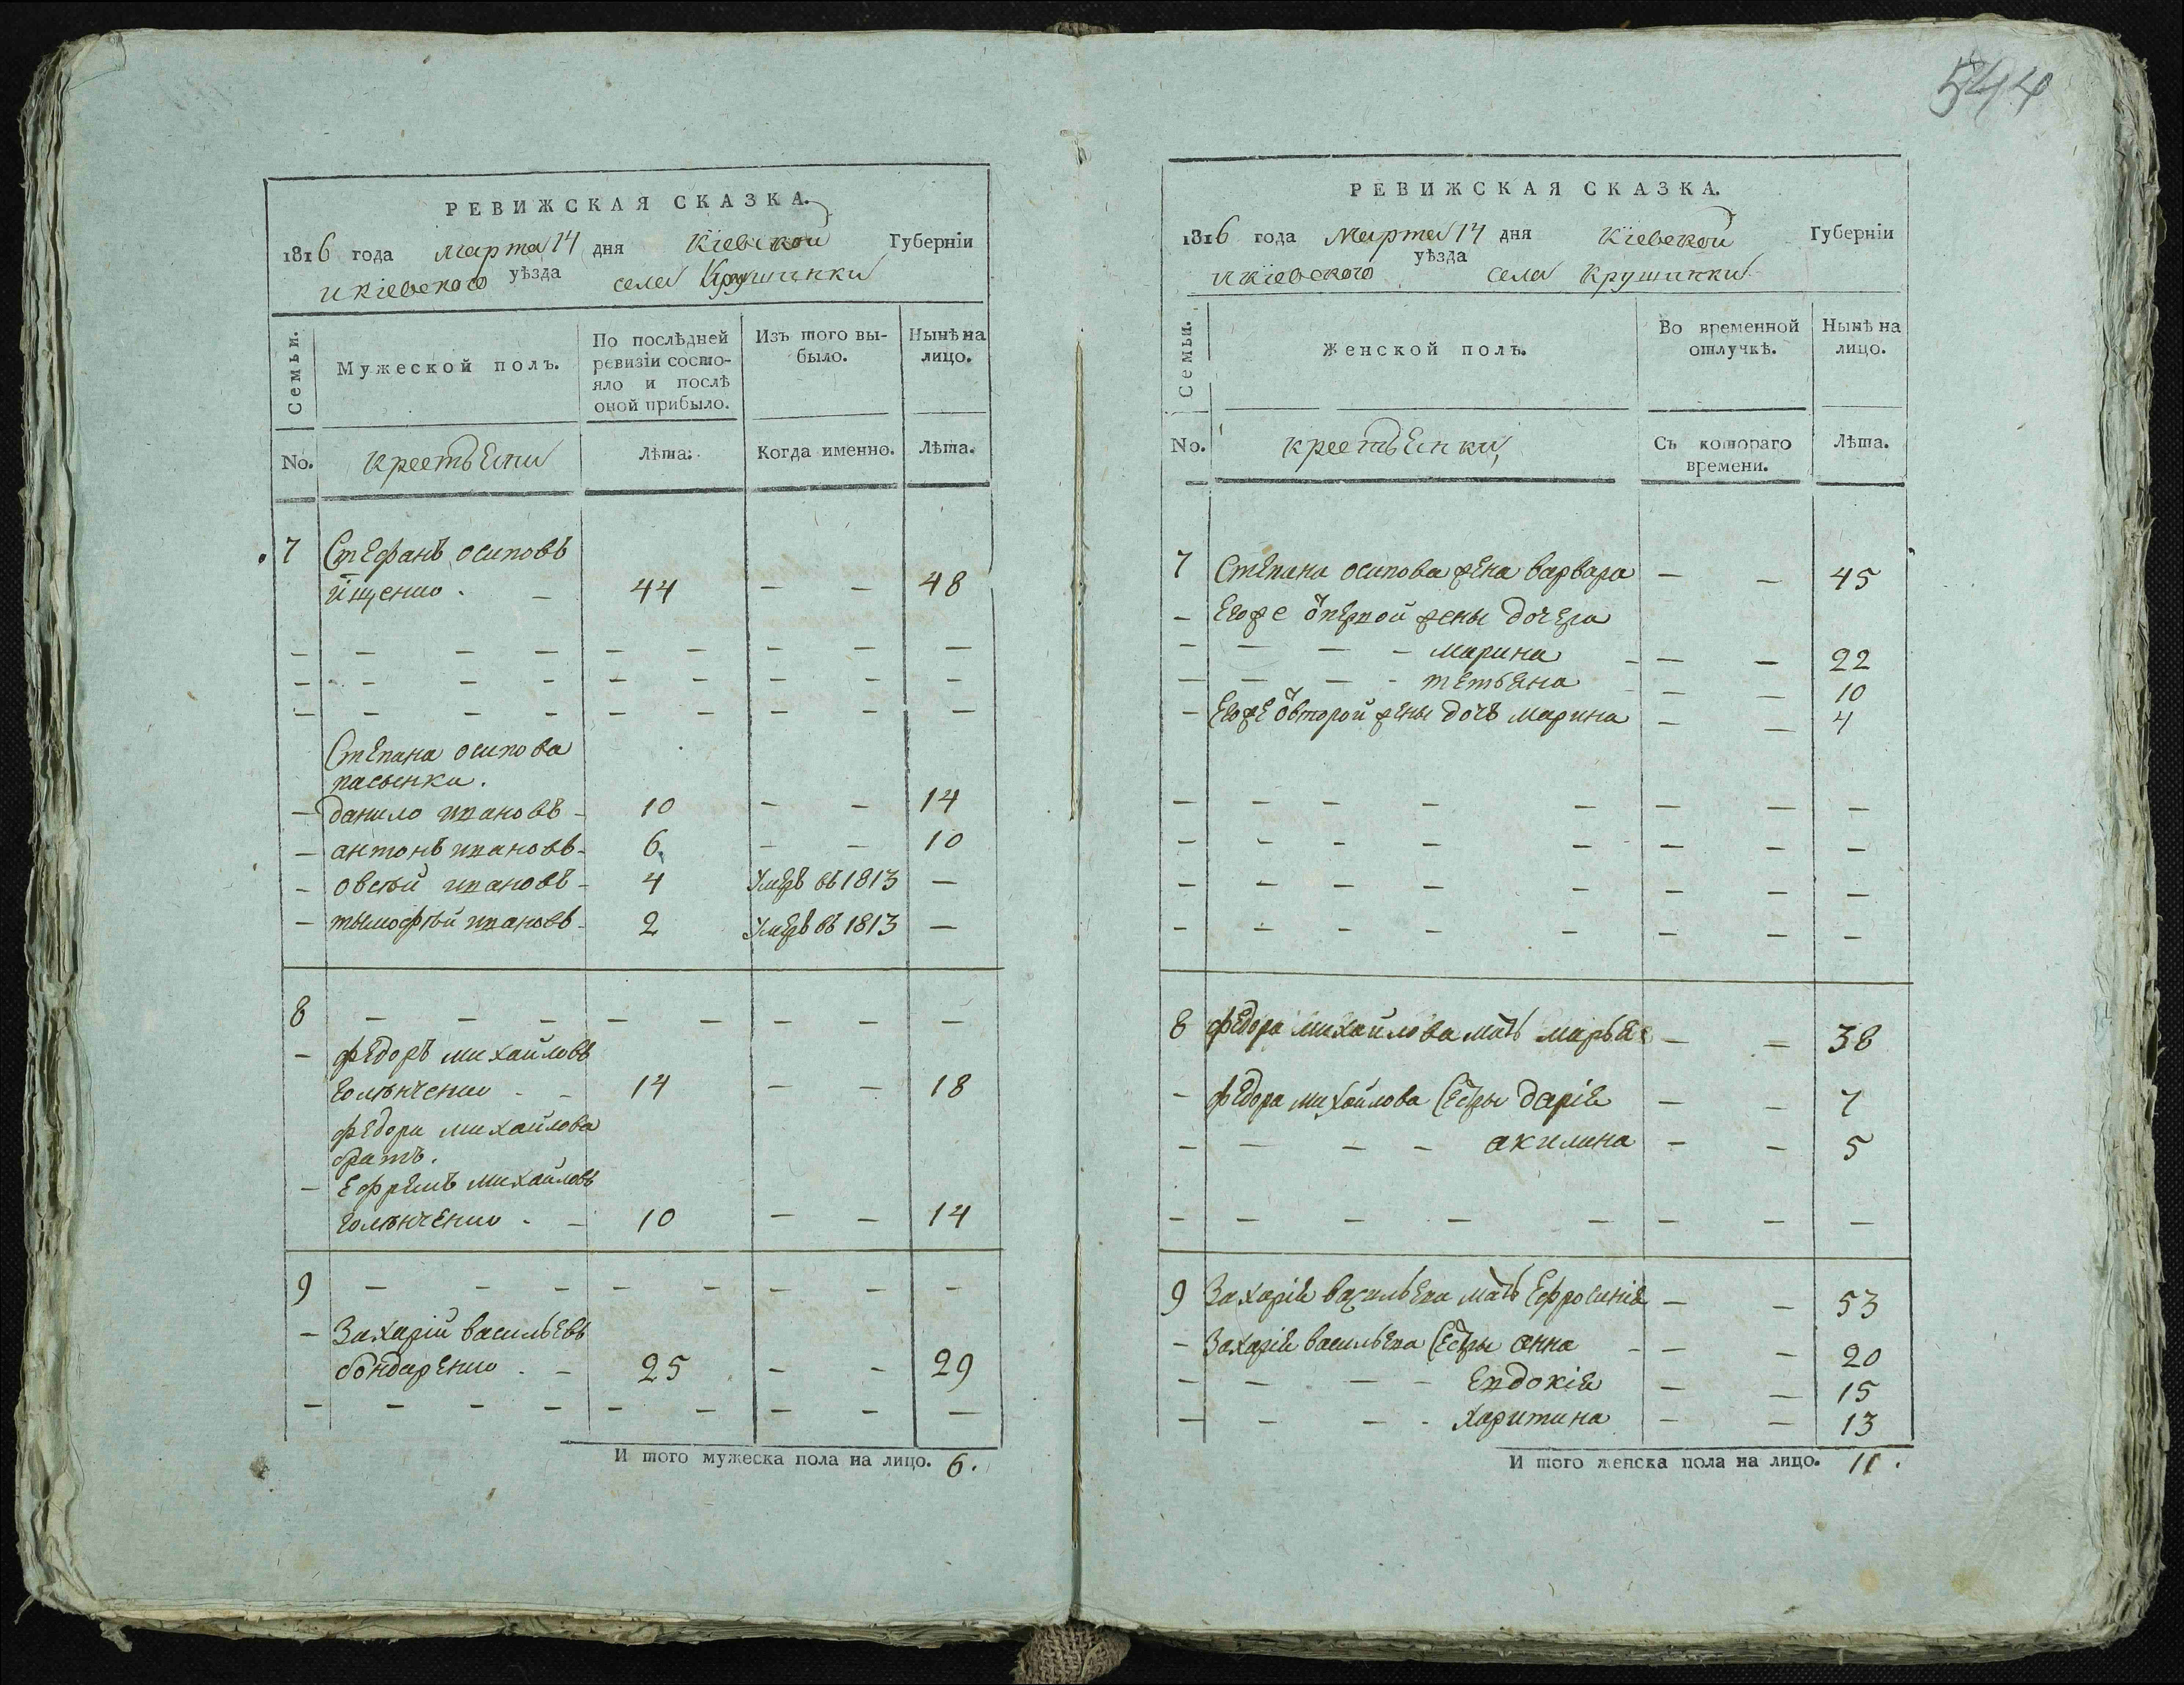 544
РЕВИЖСКАЯ СКАЗКА.
1816 года марта 14 дня Кіевской Губерніи
икіевского уѣзда села Крушинки
Семьи.
Мужеской полъ.
По послѣдней ревизіи состояло и послѣ оной прибыло.
Изъ того выбыло.
Нынѣ на лицо.
No. крестьени Лѣта. Когда именно. Лѣта.
7 Стефанъ осиповъ
іщенко . – 44 – – 48
– – – – – – – – –
– – – – – – – – –
– – – – – – – – –
Степана осипова
пасынки .
– данило ивановъ – 10 – – 14
– антонъ ивановъ – 6. – – 10
– овсѣй ивановъ – 4 Умеръ въ 1813 –
– тымофѣй ивановъ – 2 Умеръ въ 1813 –
8 – – – – – – – –
– федоръ михайловъ
голѣнченко . – 14 – – 18
федора михайлова
братъ .
– Ефремъ михайловъ
голѣнченко . – 10 – – 14
9 – – – – – – – –
– Захарій васильевъ
бондаренко . – 25 – – 29
– – – – – – – – –
И того мужеска пола на лицо. 6.
РЕВИЖСКАЯ СКАЗКА.
1816 года Марта 14 дня Кіевской Губерніи
икіевского уѣзда села Крушинки
Семьи.
Женской полъ.
Во временной отлучкѣ.
Нынѣ на лицо.
No. крестьенки, Съ котораго времени. Лѣта.
7 Степана осипова жена варвара – – 45
– Егоже ѿпервой жены дочера
– – – – марина – – – 22
– – – – тетьяна – – – 10
– Егоже ѿвторой жены дочъ марина – – 4
– – – – – – – –
– – – – – – – –
– – – – – – – –
– – – – – – – –
8 федора михайлова мать марья – – 38
– федора михайлова сестры дарія – – 7
– – – – акилина – – 5
– – – – – – – –
9 Захарія васильева мать Ефросинія – – 53
– Захарія васильева сестры анна – – – 20
– – – – Евдокія – – 15
– – – – харитина – – 13
И того женска пола на лицо. 11 .